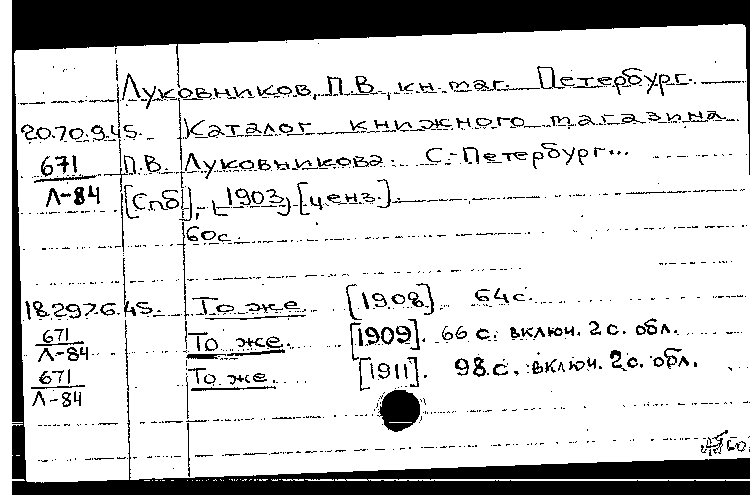 Луковников, П.В., кн. маг. Петербург.
20.70.9.45. Каталог книжного магазина
671 П.В. Луковникова. С.-Петербург...
Л-84 [Спб], 1903, [ценз.].
60с.
18.297.6.45. То же [1908]. 64с.
671
Л-84 То же. [1909]. 66 с. включ. 2 с. обл.
671
Л-84 То же. [1911]. 98 с. включ. 2 с. обл.